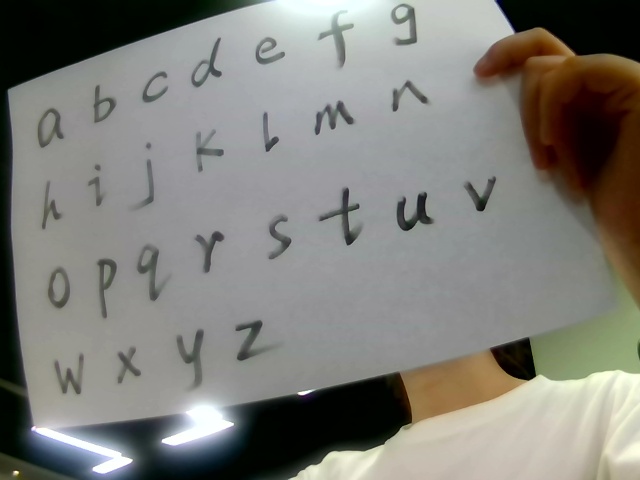 a b c d e f g
h i j k l m n
o p q r s t u v
w x y z